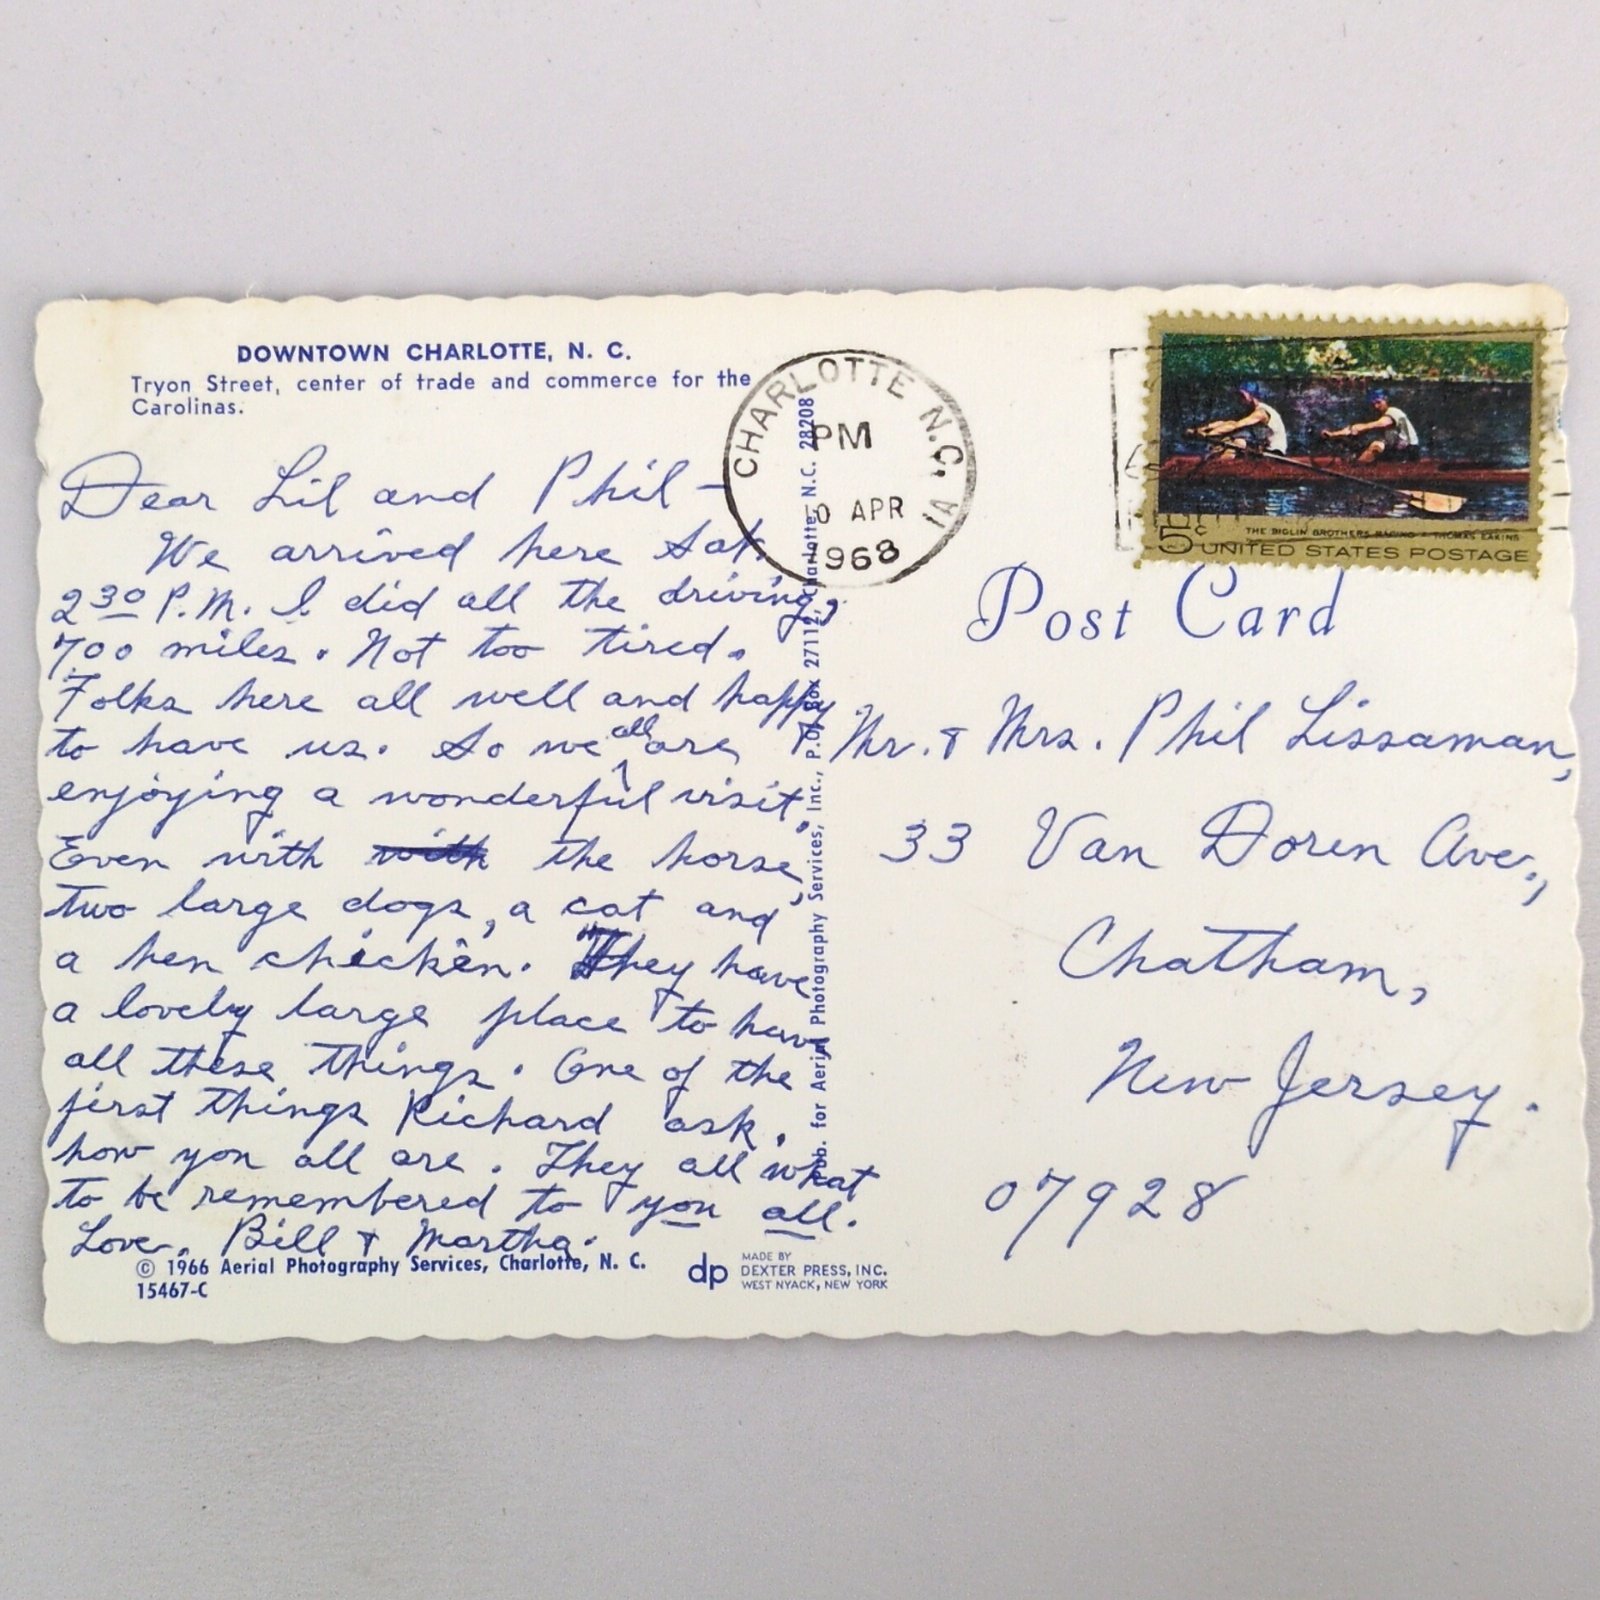 DOWNTOWN CHARLOTTE, N. C.
Tryon Street, center of trade and commerce for the
Carolinas.
Dear Lil and Phil —
We arrived here Sat.
2 30 P.M. I did all the driving,
700 miles. Not too tired.
Folks here all well and happy
to have us. So we all are
enjoying a wonderful visit.
Even with with the horse,
two large dogs, a cat and
a hen chicken. They have
a lovely large place to have
all these things. One of the
first things Richard ask,
how you all are. They all what
to be remembered to you all.
Love, Bill & Martha.
© 1966 Aerial Photography Services, Charlotte, N. C.
15467-C
dp
MADE BY
DEXTER PRESS, INC.
WEST NYACK, NEW YORK
Pub. for Aerial Photography Services, Inc., P.O. Box 27112, Charlotte, N.C. 28208
CHARLOTTE N.C.
PM
APR
1968
5c
THE BIGLIN BROTHERS RACING * THOMAS EAKINS
UNITED STATES POSTAGE
Post Card
Mr. & Mrs. Phil Lissaman,
33 Van Doren Ave.,
Chatham,
New Jersey.
07928